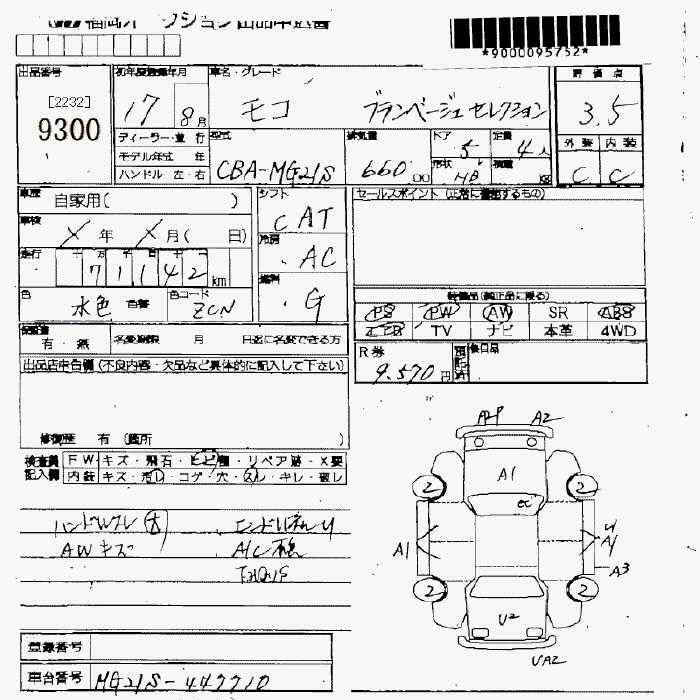 *9000095752*
出品番号 初年度登録年月 車名・グレード 評価点
[2232]
9300
17 8月 モコ ブランベージュセレクション 3.5
ディーラー・並行 型式 排気量 ドア 5 定員 4人 外装 内装
モデル年式 年
ハンドル 左・右 CBA-MG21S 660 cc 形状 HB 積載 kg C C
車歴 自家用( ) シフト C AT セールスポイント(正常に機能するもの)
車検 X年 X月( 日) 冷房 AC
走行 71142km 燃料 G
色 水色 色替 色コード ZCN
装備品(純正品に限る)
PS PW AW SR ABS
エアB TV ナビ 本革 4WD
保証書 有・紙 名変期限 月 日迄に名変できる方
R券 9.570円 後日品
出品店申告欄(不良内容・欠品など具体的に記入して下さい)
修復歴 有(箇所 )
検査員記入欄 FW キズ・飛石・ヒビ・リペア跡・X要
内装 キズ・汚レ・コゲ・穴・スレ・キレ・破レ
ハンドルスレ 大
AWキズ A/C
A2P A2
A1
2 2
A1 A3
2 2
U2
UA2
登録番号
車台番号 MG21S-447710